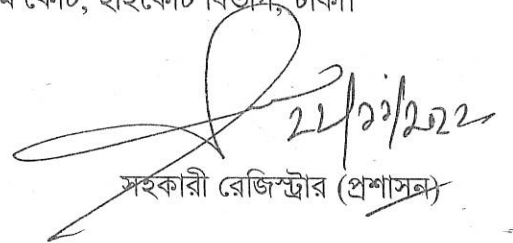 কোর্ট, হাইকোর্ট বিভাগ, ঢাকা।
২২/১১/২০২২
সহকারী রেজিস্ট্রার (প্রশাসন)